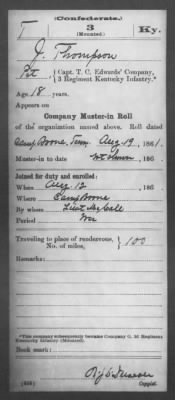 (Confederate.)
T 3 Ky.
(Mounted.)
J. Thompson
Pvt, Capt. T. C. Edwards' Company,
3 Regiment Kentucky Infantry.*
Age 18 years.
Appears on
Company Muster-in Roll
of the organization named above. Roll dated
Camp Boone, Tenn, Aug 19, 1861.
Muster-in to date 186 .
Joined for duty and enrolled:
When Aug 12, 186 .
Where Camp Boone
By whom Lieut
Period War
Traveling to place of rendezvous,
No. of miles, 100
Remarks:
*This company subsequently became Company G, 3d Regiment
Kentucky Infantry (Mounted).
Book mark:
Copyist.